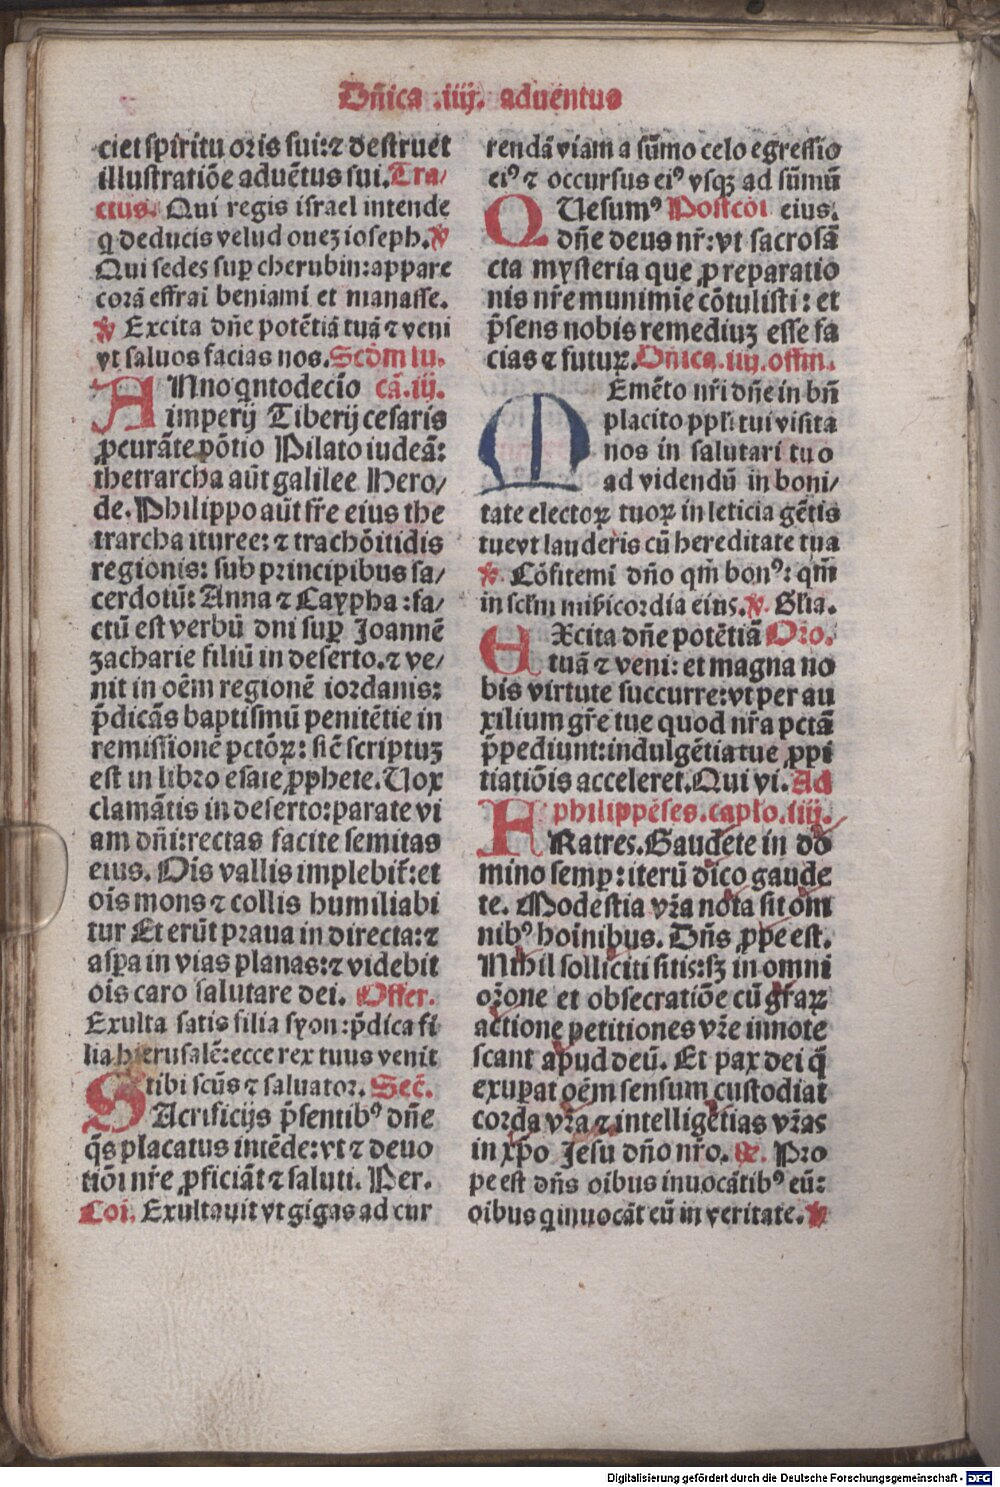 Dñica .iiij. aduentus
ciet spiritu oris sui: ⁊ destruet
illustratiõe aduẽtus sui. Tra/
ctus. Qui regis israel intende
q̇ deducis velud ouez ioseph. ℣
Qui sedes suꝑ cherubin: appare
corã effrai beniami et manasse.
℣ Excita dñe potẽtiã tuã ⁊ veni
vt saluos facias nos. Scḋm lu.
ANno qntodecĩo cã. iij.
imperij Tiberij cesaris
ꝓcurãte põtio Pilato iudeã:
thetrarcha aũt galilee Hero/
de. Philippo aũt fr̃e eius the
trarcha ituree: ⁊ trachõitidis
regionis: sub principibus sa/
cerdotũ: Anna ⁊ Caypha: fa/
ctũ est verbũ dni suꝑ Joannẽ
zacharie filiũ in deserto. ⁊ ve/
nit in oẽm regionẽ iordanis:
p̃dicãs baptismũ penitẽtie in
remissionẽ pctõꝝ: sic̃ scriptuꝫ
est in libro esaie ꝓphete. Uox
clamãtis in deserto: parate vi
am dñi: rectas facite semitas
eius. Oĩs vallis implebit̃: et
oĩs mons ⁊ collis humiliabi
tur Et erũt praua in directa: ⁊
asꝑa in vias planas: ⁊ videbit
oĩs caro salutare dei. Offer.
Exulta satis filia syon: p̃dica fi
lia hierusalẽ: ecce rex tuus venit
tibi scũs ⁊ saluator. Sec̃.
SAcrificijs p̃sentibꝰ dñe
q̃s placatus intẽde: vt ⁊ deuo
tiõi nr̃e ꝓficiãt ⁊ saluti. Per.
Coi. Exultauit vt gigas ad cur
rendã viam a sũmo celo egressio
eiꝰ ⁊ occursus eiꝰ vsqꝫ ad sũmũ
QUesumꝰ Postcoi eius.
dñe deus nr̃: vt sacrosã
cta mysteria que ꝓ reparatio
nis nr̃e munimĩe cõtulisti: et
p̃sens nobis remediuꝫ esse fa
cias ⁊ futuꝝ. Dñica. iiij. offm.
MEmẽto nr̃i dñe in bñ
placito ppłi tui visita
nos in salutari tuo
ad videndũ in boni/
tate electoꝝ tuoꝝ in leticia gẽtis
tue vt lauderis cũ hereditate tua
℣ Cõfitemi dño qm̃ bonꝰ: qm̃
in sełm mi̴sicordia eius. ℣. Glia.
EXcita dñe potẽtiã Oro.
tuã ⁊ veni: et magna no
bis virtute succurre: vt per au
xilium gr̃e tue quod nr̃a pctã
p̃pediunt: indulgẽtia tue ꝓpi
tiatiõis acceleret. Qui vi. Ad
philippẽses. capło. iiij.
FRatres. Gaudete in do
mino semꝑ: iterũ dico gaude
te. Modestia vr̃a nota sit om
nibꝰ hoĩnibus. Dñs ꝓpe est.
Nihil solliciti sitis: sꝫ in omni
or̃one et obsecratiõe cũ gr̃aꝝ
actione petitiones vr̃e innote
scant apud deũ. Et pax dei q̃
exuꝑat oẽm sensum custodiat
corda vr̃a ⁊ intelligẽtias vr̃as
in xp̃o Jesu dño nr̃o. Gr̃. Pro
pe est dñs oĩbus inuocãtibꝰ eũ:
oĩbus q̇ inuocãt eũ in veritate. ℣
Digitalisierung gefördert durch die Deutsche Forschungsgemeinschaft - DFG